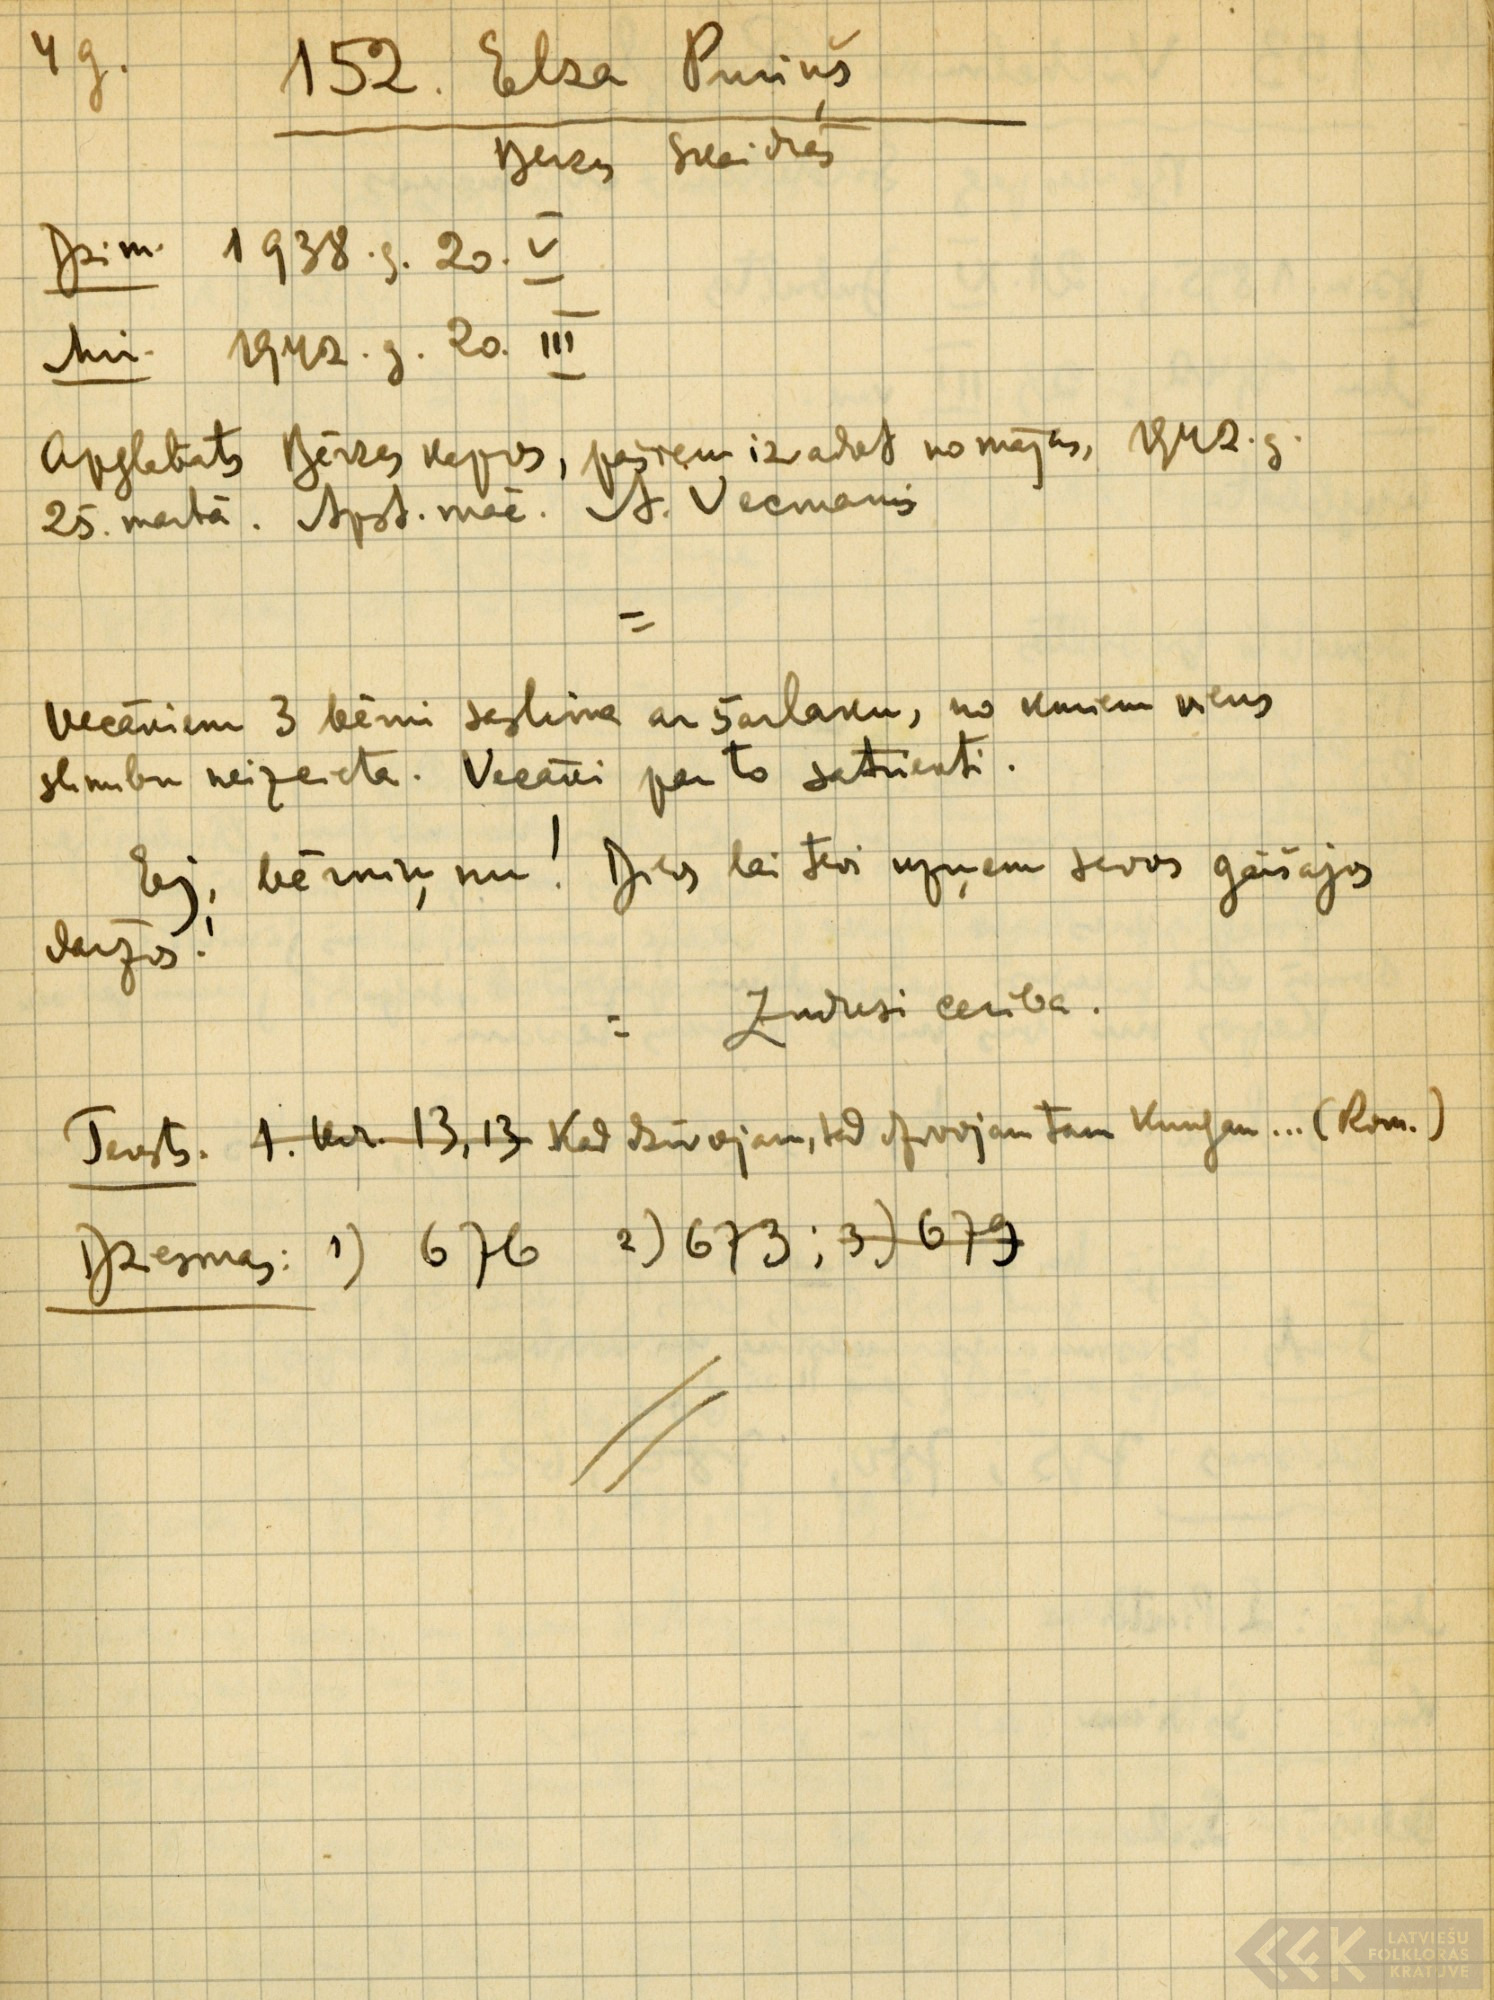 4 g.
152. Elza Puriņš
Bērzes Skaidrās
Dzim. 1938. g. 20. V
Mir. 1942. g. 20. III
Apglabāts Bērzes kapos, pašiem izvadot no mājas, 1942. g.
25. martā. Apst. māc. A. Vecmanis
=
Vecākiem 3 bērni saslima ar šarlaku, no kuriem viens
slimību neizcieta. Vecāki par to satriekti.
Ej, bērniņ, nu! Dievs lai tevi uzņem savos gaišajos
dārzos!
= Zudusi cerība.
Teksts. 1. Kor. 13, 13 Kad dzīvojam, tad dzīvojam tam Kungam... (Rom.)
Dziesmas: 1) 676 2) 673; 3) 679
LATVIEŠU
FOLKLORAS
KRĀTUVE